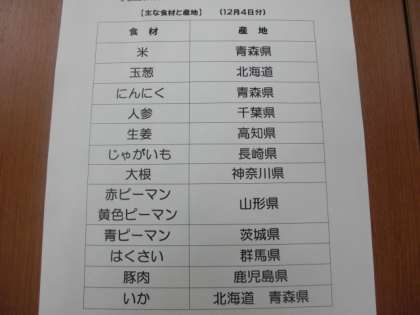 【主な食材と産地】 （12月4日分）
食 材 産 地
米 青森県
玉葱 北海道
にんにく 青森県
人参 千葉県
生姜 高知県
じゃがいも 長崎県
大根 神奈川県
赤ピーマン
黄色ピーマン 山形県
青ピーマン 茨城県
はくさい 群馬県
豚肉 鹿児島県
いか 北海道 青森県